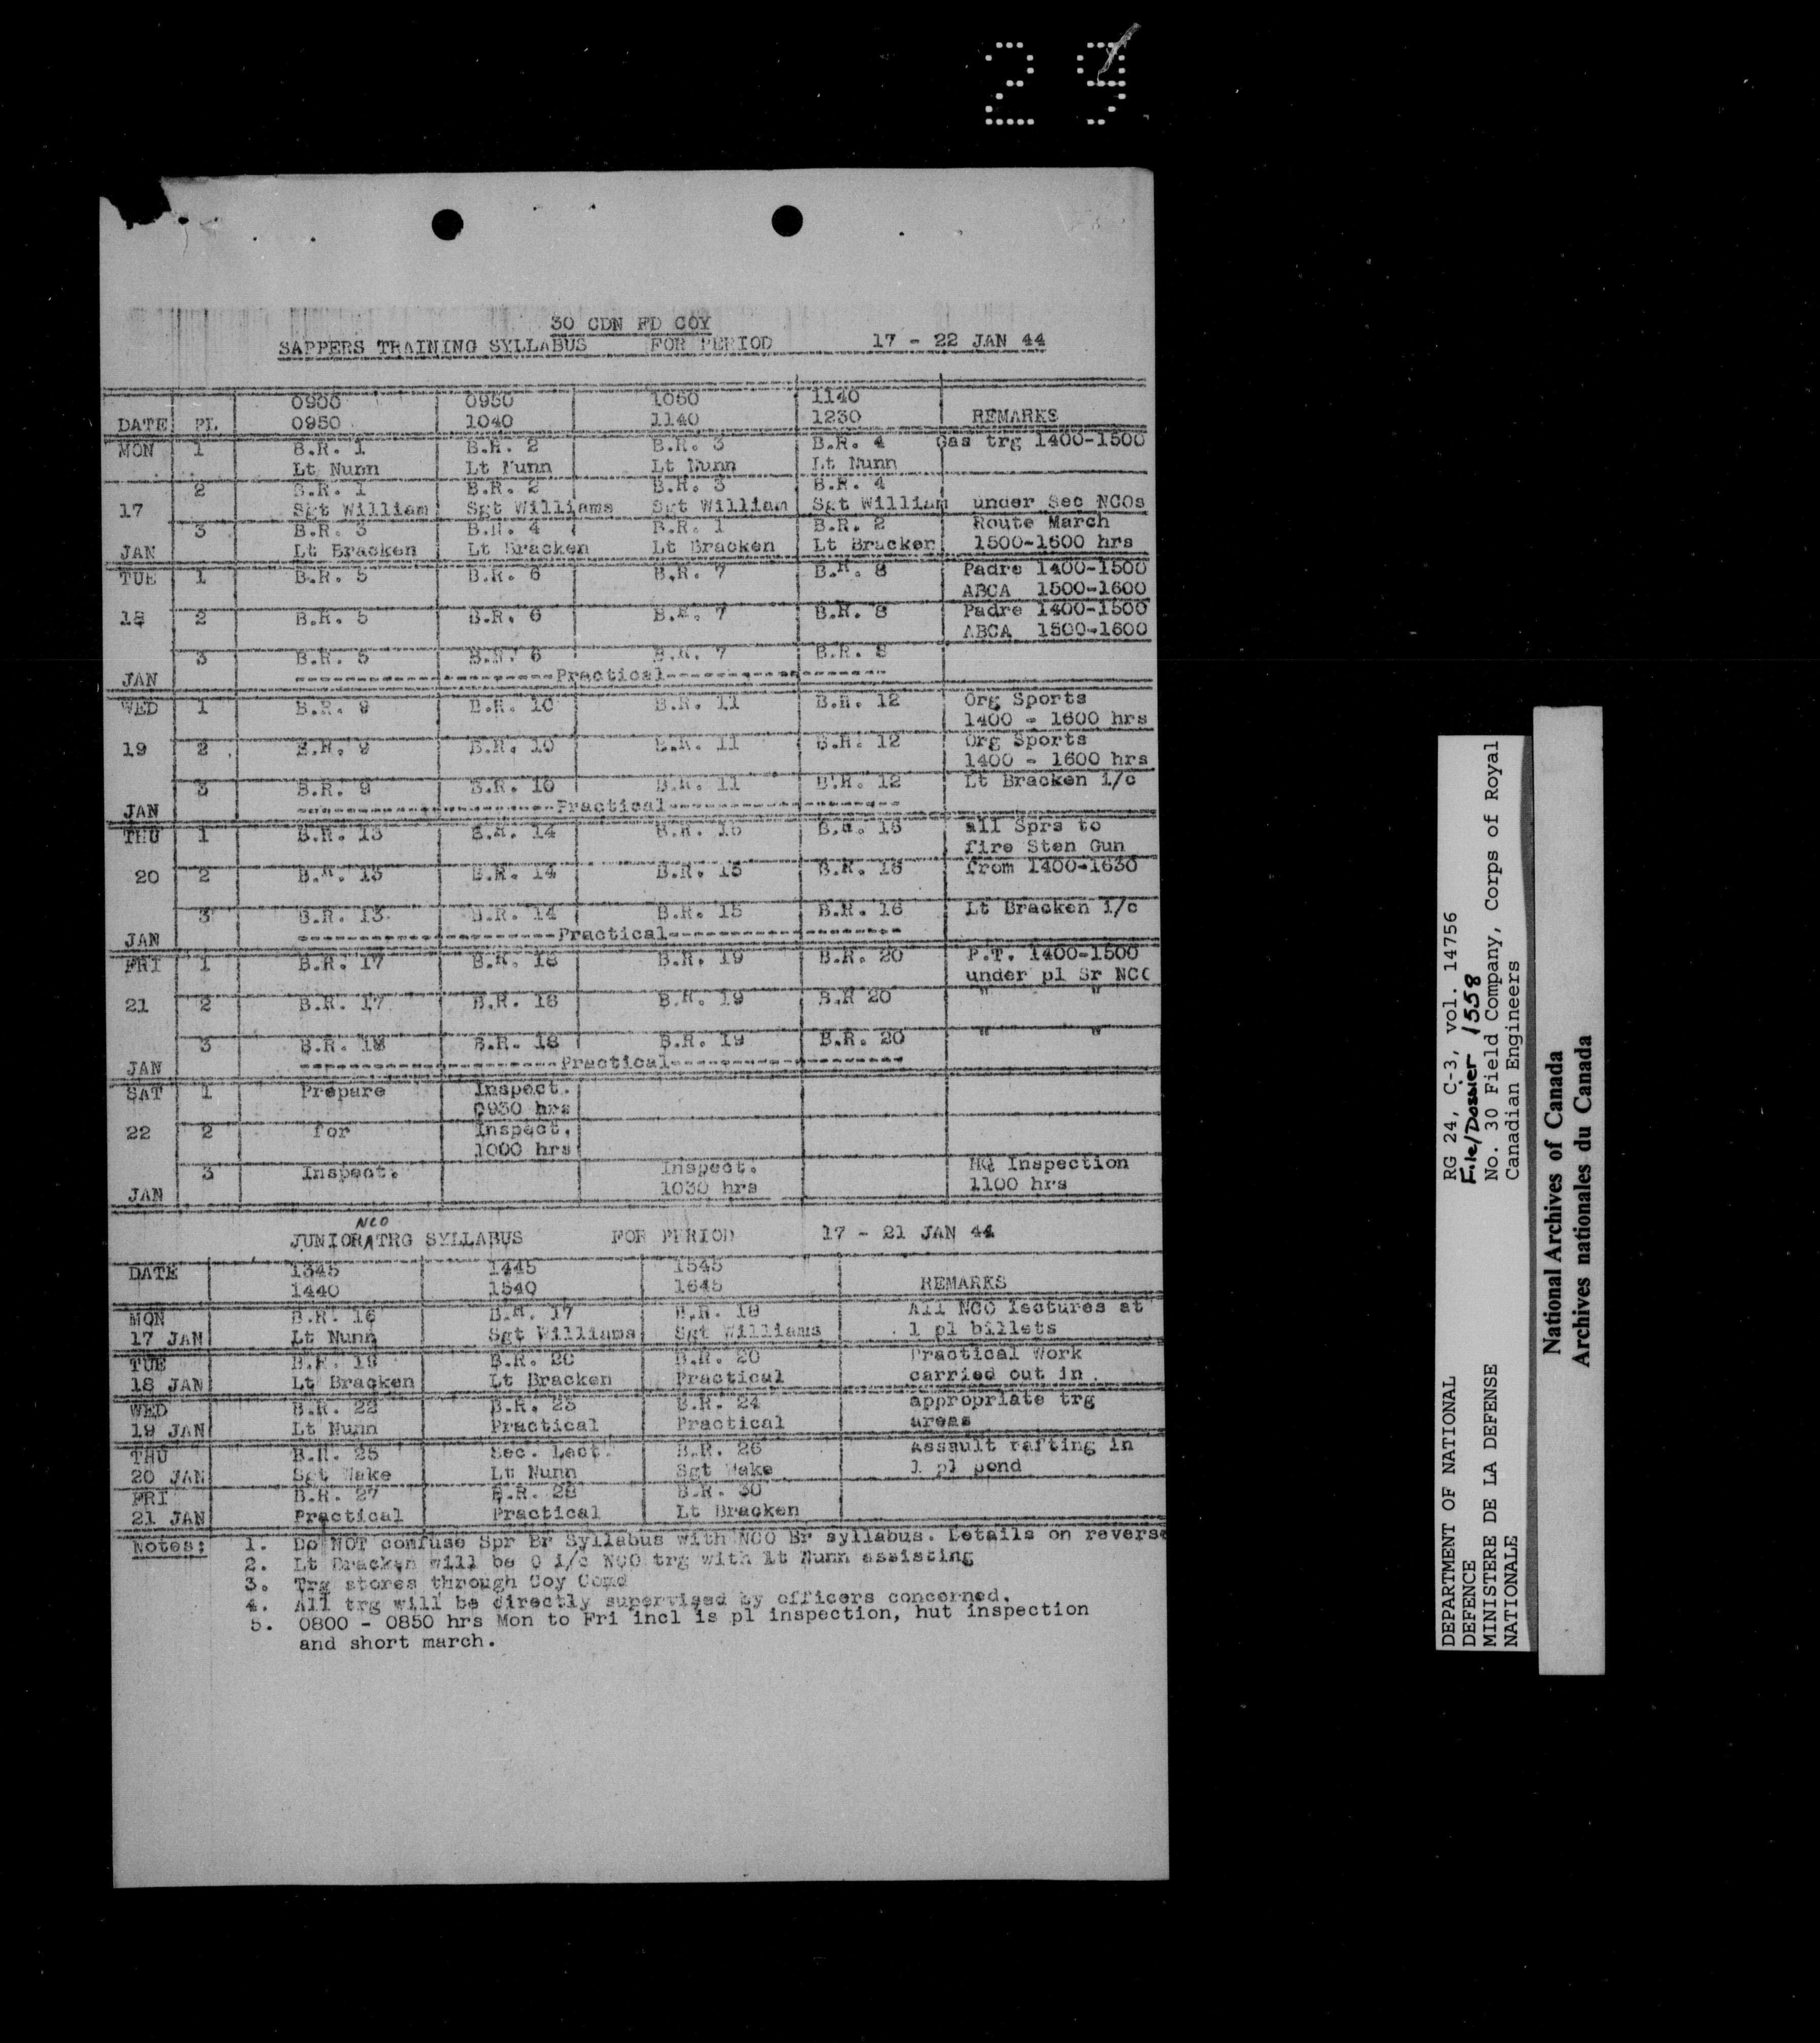 29
30 CDN FD COY
SAPPERS TRAINING SYLLABUS FOR PERIOD 17 - 22 JAN 44
0900 0950 1050 1140
DATE PL 0950 1040 1140 1230 REMARKS
MON 1 B.R. 1 B.R. 2 B.R. 3 B.R. 4 Gas trg 1400-1500
Lt Nunn Lt Nunn Lt Nunn Lt Nunn
2 B.R. 1 B.R. 2 B.R. 3 B.R. 4
17 Sgt William Sgt Williams Sgt William Sgt William under Sec NCOs
3 B.R. 3 B.R. 4 B.R. 1 B.R. 2 Route March
JAN Lt Bracken Lt Bracken Lt Bracken Lt Bracken 1500-1600 hrs
TUE 1 B.R. 5 B.R. 6 B.R. 7 B.R. 8 Padre 1400-1500
ABCA 1500-1600
18 2 B.R. 5 B.R. 6 B.R. 7 B.R. 8 Padre 1400-1500
ABCA 1500-1600
3 B.R. 5 B.R. 6 B.R. 7 B.R. 8
JAN --------------------Practical--------------------
WED 1 B.R. 9 B.R. 10 B.R. 11 B.R. 12 Org Sports
1400 - 1600 hrs
19 2 B.R. 9 B.R. 10 B.R. 11 B.R. 12 Org Sports
1400 - 1600 hrs
3 B.R. 9 B.R. 10 B.R. 11 B.R. 12 Lt Bracken i/c
JAN --------------------Practical--------------------
THU 1 B.R. 13 B.R. 14 B.R. 15 B.R. 16 all Sprs to
fire Sten Gun
20 2 B.R. 13 B.R. 14 B.R. 15 B.R. 16 from 1400-1630
3 B.R. 13 B.R. 14 B.R. 15 B.R. 16 Lt Bracken i/c
JAN --------------------Practical--------------------
FRI 1 B.R. 17 B.R. 18 B.R. 19 B.R. 20 P.T. 1400-1500
under pl Sr NCO
21 2 B.R. 17 B.R. 18 B.R. 19 B.R 20 " "
3 B.R. 18 B.R. 18 B.R. 19 B.R. 20 " "
JAN --------------------Practical--------------------
SAT 1 Prepare Inspect.
0930 hrs
22 2 for Inspect.
1000 hrs
3 Inspect. Inspect. HQ Inspection
JAN 1030 hrs 1100 hrs
JUNIOR NCO TRG SYLLABUS FOR PERIOD 17 - 21 JAN 44
DATE 1345 1445 1545
1440 1540 1645 REMARKS
MON B.R. 16 B.R. 17 B.R. 18 All NCO lectures at
17 JAN Lt Nunn Sgt Williams Sgt Williams 1 pl billets
TUE B.R. 19 B.R. 20 B.R. 20 Practical Work
18 JAN Lt Bracken Lt Bracken Practical carried out in
WED B.R. 22 B.R. 23 B.R. 24 appropriate trg
19 JAN Lt Nunn Practical Practical areas
THU B.R. 25 Sec. Lect. B.R. 26 Assault rafting in
20 JAN Sgt Wake Lt Nunn Sgt Wake 1 pl pond
FRI B.R. 27 B.R. 28 B.R. 30
21 JAN Practical Practical Lt Bracken
Notes: 1. Do NOT confuse Spr Br Syllabus with NCO Br syllabus. Details on reverse
2. Lt Bracken will be O i/c NCO trg with Lt Nunn assisting
3. Trg stores through Coy Comd
4. All trg will be directly supervised by officers concerned.
5. 0800 - 0850 hrs Mon to Fri incl is pl inspection, hut inspection
and short march.
DEPARTMENT OF NATIONAL RG 24, C-3, vol. 14756
DEFENCE File/Dossier 1558
MINISTERE DE LA DEFENSE No. 30 Field Company, Corps of Royal
NATIONALE Canadian Engineers
National Archives of Canada
Archives nationales du Canada